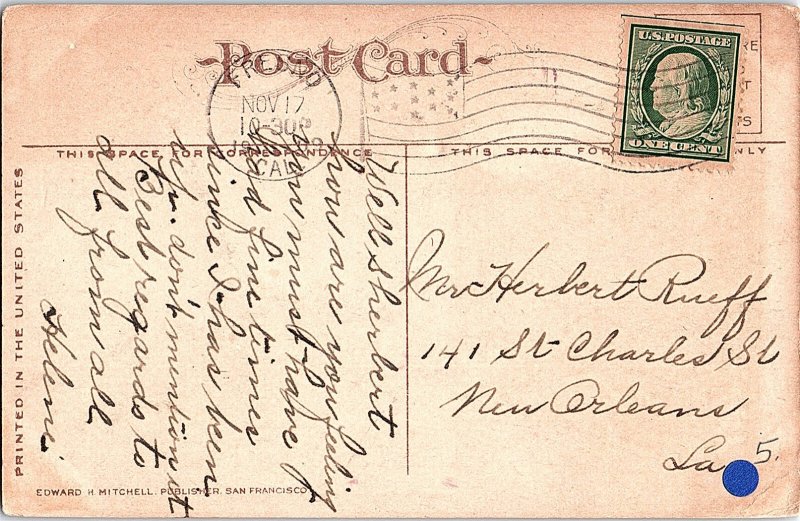 Post Card
FRESNO
NOV 17
10-30P
CAL.
U.S. POSTAGE
ONE CENT
THIS SPACE FOR CORRESPONDENCE
THIS SPACE FOR
NLY
Well sherbert
how are you feeling
you must have
good fine times
since I has been
up. don't mention it
Best regards to
all from all
Helene.
Mr Herbert Rueff
141 St Charles St
New Orleans
La 5.
PRINTED IN THE UNITED STATES
EDWARD H. MITCHELL, PUBLISHER, SAN FRANCISCO